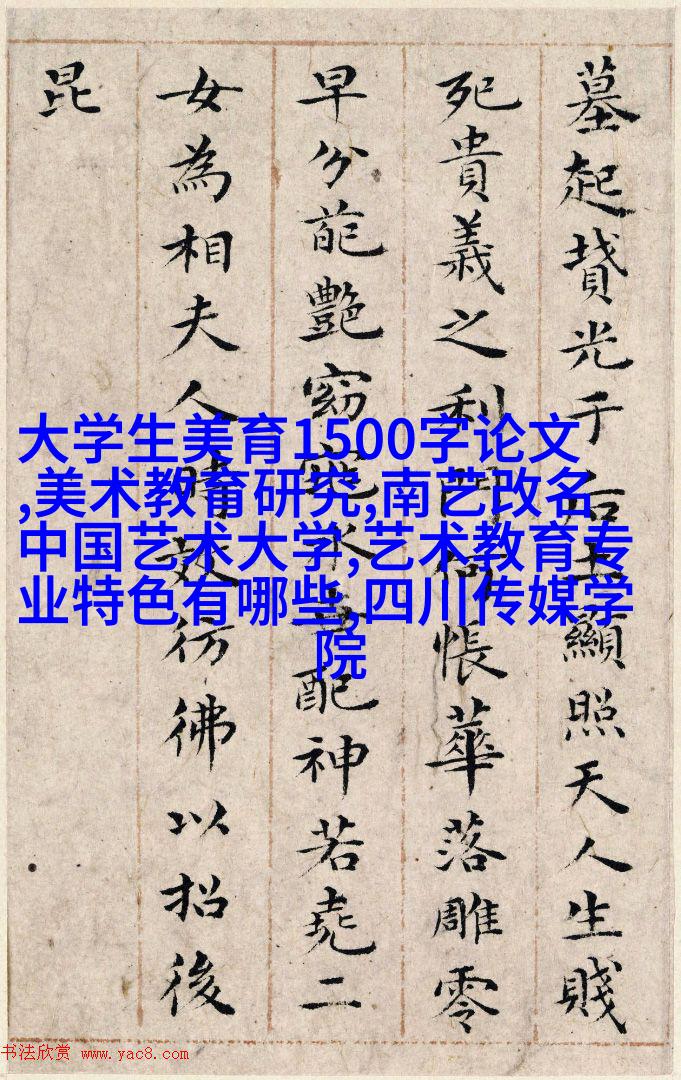 墓起墳光于后土顯照天人生賤
死貴義之利門何悵華落雕零
早分葩艷窈窕永世配神若堯二
女為相夫人時效彷彿以招後
昆
大学生美育1500字论文
,美术教育研究,南艺改名
中国艺术大学,艺术教育专
业特色有哪些,四川传媒学
院
书法欣赏 www.yac8.com